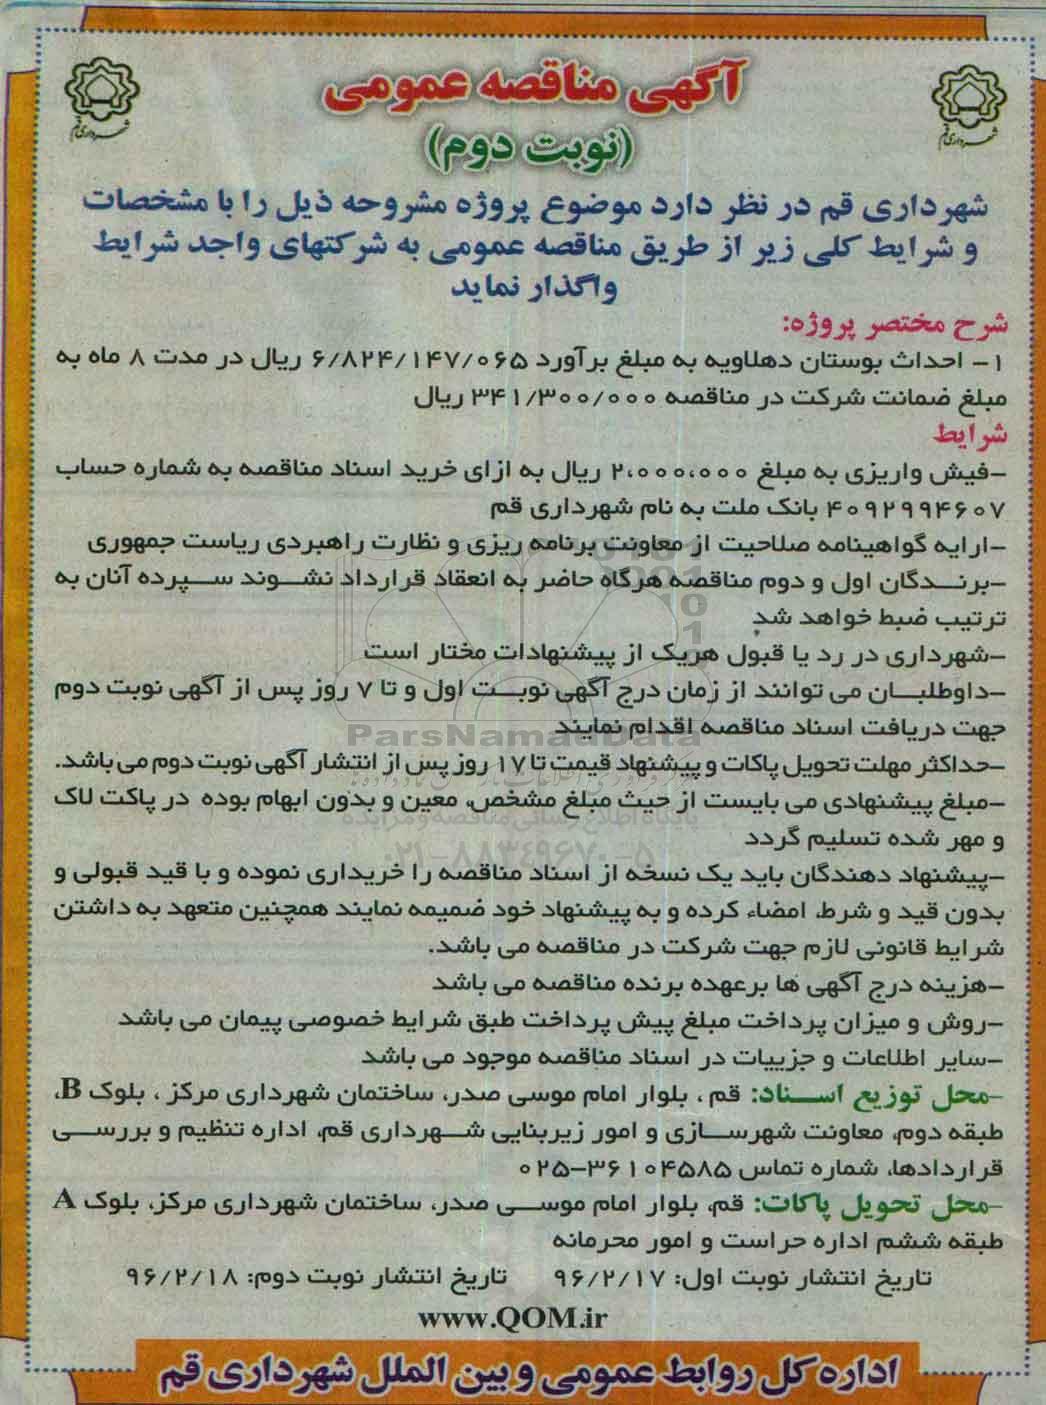 آگهی مناقصه عمومی
(نوبت دوم)
شهرداری قم
شهرداری قم
شهرداری قم در نظر دارد موضوع پروژه مشروحه ذیل را با مشخصات
و شرایط کلی زیر از طریق مناقصه عمومی به شرکتهای واجد شرایط
واگذار نماید
شرح مختصر پروژه:
۱- احداث بوستان دهلاویه به مبلغ برآورد ۶/۸۲۴/۱۴۷/۰۶۵ ریال در مدت ۸ ماه به
مبلغ ضمانت شرکت در مناقصه ۳۴۱/۳۰۰/۰۰۰ ریال
شرایط
-فیش واریزی به مبلغ ۲،۰۰۰،۰۰۰ ریال به ازای خرید اسناد مناقصه به شماره حساب
۴۰۹۲۹۹۴۶۰۷ بانک ملت به نام شهرداری قم
-ارایه گواهینامه صلاحیت از معاونت برنامه ریزی و نظارت راهبردی ریاست جمهوری
-برندگان اول و دوم مناقصه هرگاه حاضر به انعقاد قرارداد نشوند سپرده آنان به
ترتیب ضبط خواهد شد
-شهرداری در رد یا قبول هریک از پیشنهادات مختار است
-داوطلبان می توانند از زمان درج آگهی نوبت اول و تا ۷ روز پس از آگهی نوبت دوم
جهت دریافت اسناد مناقصه اقدام نمایند
ParsNamadData
-حداکثر مهلت تحویل پاکات و پیشنهاد قیمت تا ۱۷ روز پس از انتشار آگهی نوبت دوم می باشد.
-مبلغ پیشنهادی می بایست از حیث مبلغ مشخص، معین و بدون ابهام بوده در پاکت لاک
پایگاه اطلاع رسانی مناقصه و مزایده
و مهر شده تسلیم گردد
۰۲۱-۸۸۳۴۹۶۷۰-۵
-پیشنهاد دهندگان باید یک نسخه از اسناد مناقصه را خریداری نموده و با قید قبولی و
بدون قید و شرط، امضاء کرده و به پیشنهاد خود ضمیمه نمایند همچنین متعهد به داشتن
شرایط قانونی لازم جهت شرکت در مناقصه می باشد.
-هزینه درج آگهی ها برعهده برنده مناقصه می باشد
-روش و میزان پرداخت مبلغ پیش پرداخت طبق شرایط خصوصی پیمان می باشد
-سایر اطلاعات و جزییات در اسناد مناقصه موجود می باشد
-محل توزیع اسناد: قم ، بلوار امام موسی صدر، ساختمان شهرداری مرکز ، بلوک B،
طبقه دوم، معاونت شهرسازی و امور زیربنایی شهرداری قم، اداره تنظیم و بررسی
قراردادها، شماره تماس ۳۶۱۰۴۵۸۵-۰۲۵
-محل تحویل پاکات: قم، بلوار امام موسی صدر، ساختمان شهرداری مرکز، بلوک A
طبقه ششم اداره حراست و امور محرمانه
تاریخ انتشار نوبت اول: ۹۶/۲/۱۷ تاریخ انتشار نوبت دوم: ۹۶/۲/۱۸
www.QOM.ir
اداره کل روابط عمومی و بین الملل شهرداری قم